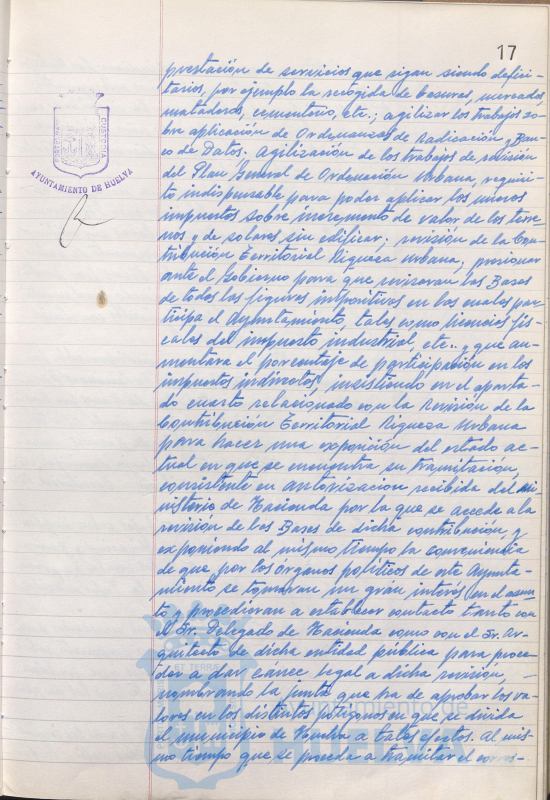 17
prestación de servicios que sigan siendo defici-
tarios, por ejemplo la recogida de basuras, mercados,
mataderos, cementerio, etc.; agilizar los trabajos so-
bre aplicación de Ordenanzas de Radicación y Ban-
co de Datos. Agilización de los trabajos de revisión
del Plan General de Ordenación Urbana, requisi-
to indispensable para poder aplicar los nuevos
impuestos sobre incremento de valor de los terre-
nos y de solares sin edificar; revisión de la Con-
tribución Territorial Riqueza Urbana, presionar
ante el Gobierno para que revisaran las Bases
de todas las figuras impositivas en las cuales par-
ticipa el Ayuntamiento, tales como licencias fis-
cales del impuesto industrial, etc.. y que au-
mentara el porcentaje de participación en los
impuestos indirectos, insistiendo en el aparta-
do cuarto relacionado con la Revisión de la
Contribución Territorial Riqueza Urbana
para hacer una exposición del estado ac-
tual en que se encuentra su tramitación,
consistente en autorización recibida del Mi-
nisterio de Hacienda por la que se accede a la
revisión de las Bases de dicha contribución y
exponiendo al mismo tiempo la conveniencia
de que por los órganos políticos de este Ayunta-
miento se tomaran un gran interés en el asun-
to y procedieran a establecer contacto tanto con
el Sr. Delegado de Hacienda como con el Sr. Ar-
quitecto de dicha entidad pública para proce-
der a dar cauce legal a dicha revisión,
nombrando la junta que ha de aprobar los va-
lores en los distintos polígonos en que se divida
el municipio de Huelva a tales efectos. Al mis-
mo tiempo que se proceda a tramitar el corres-
PORTUS MARIS
CUSTODIA
AYUNTAMIENTO DE HUELVA
ET TERRAE
Ayuntamiento de
HUELVA